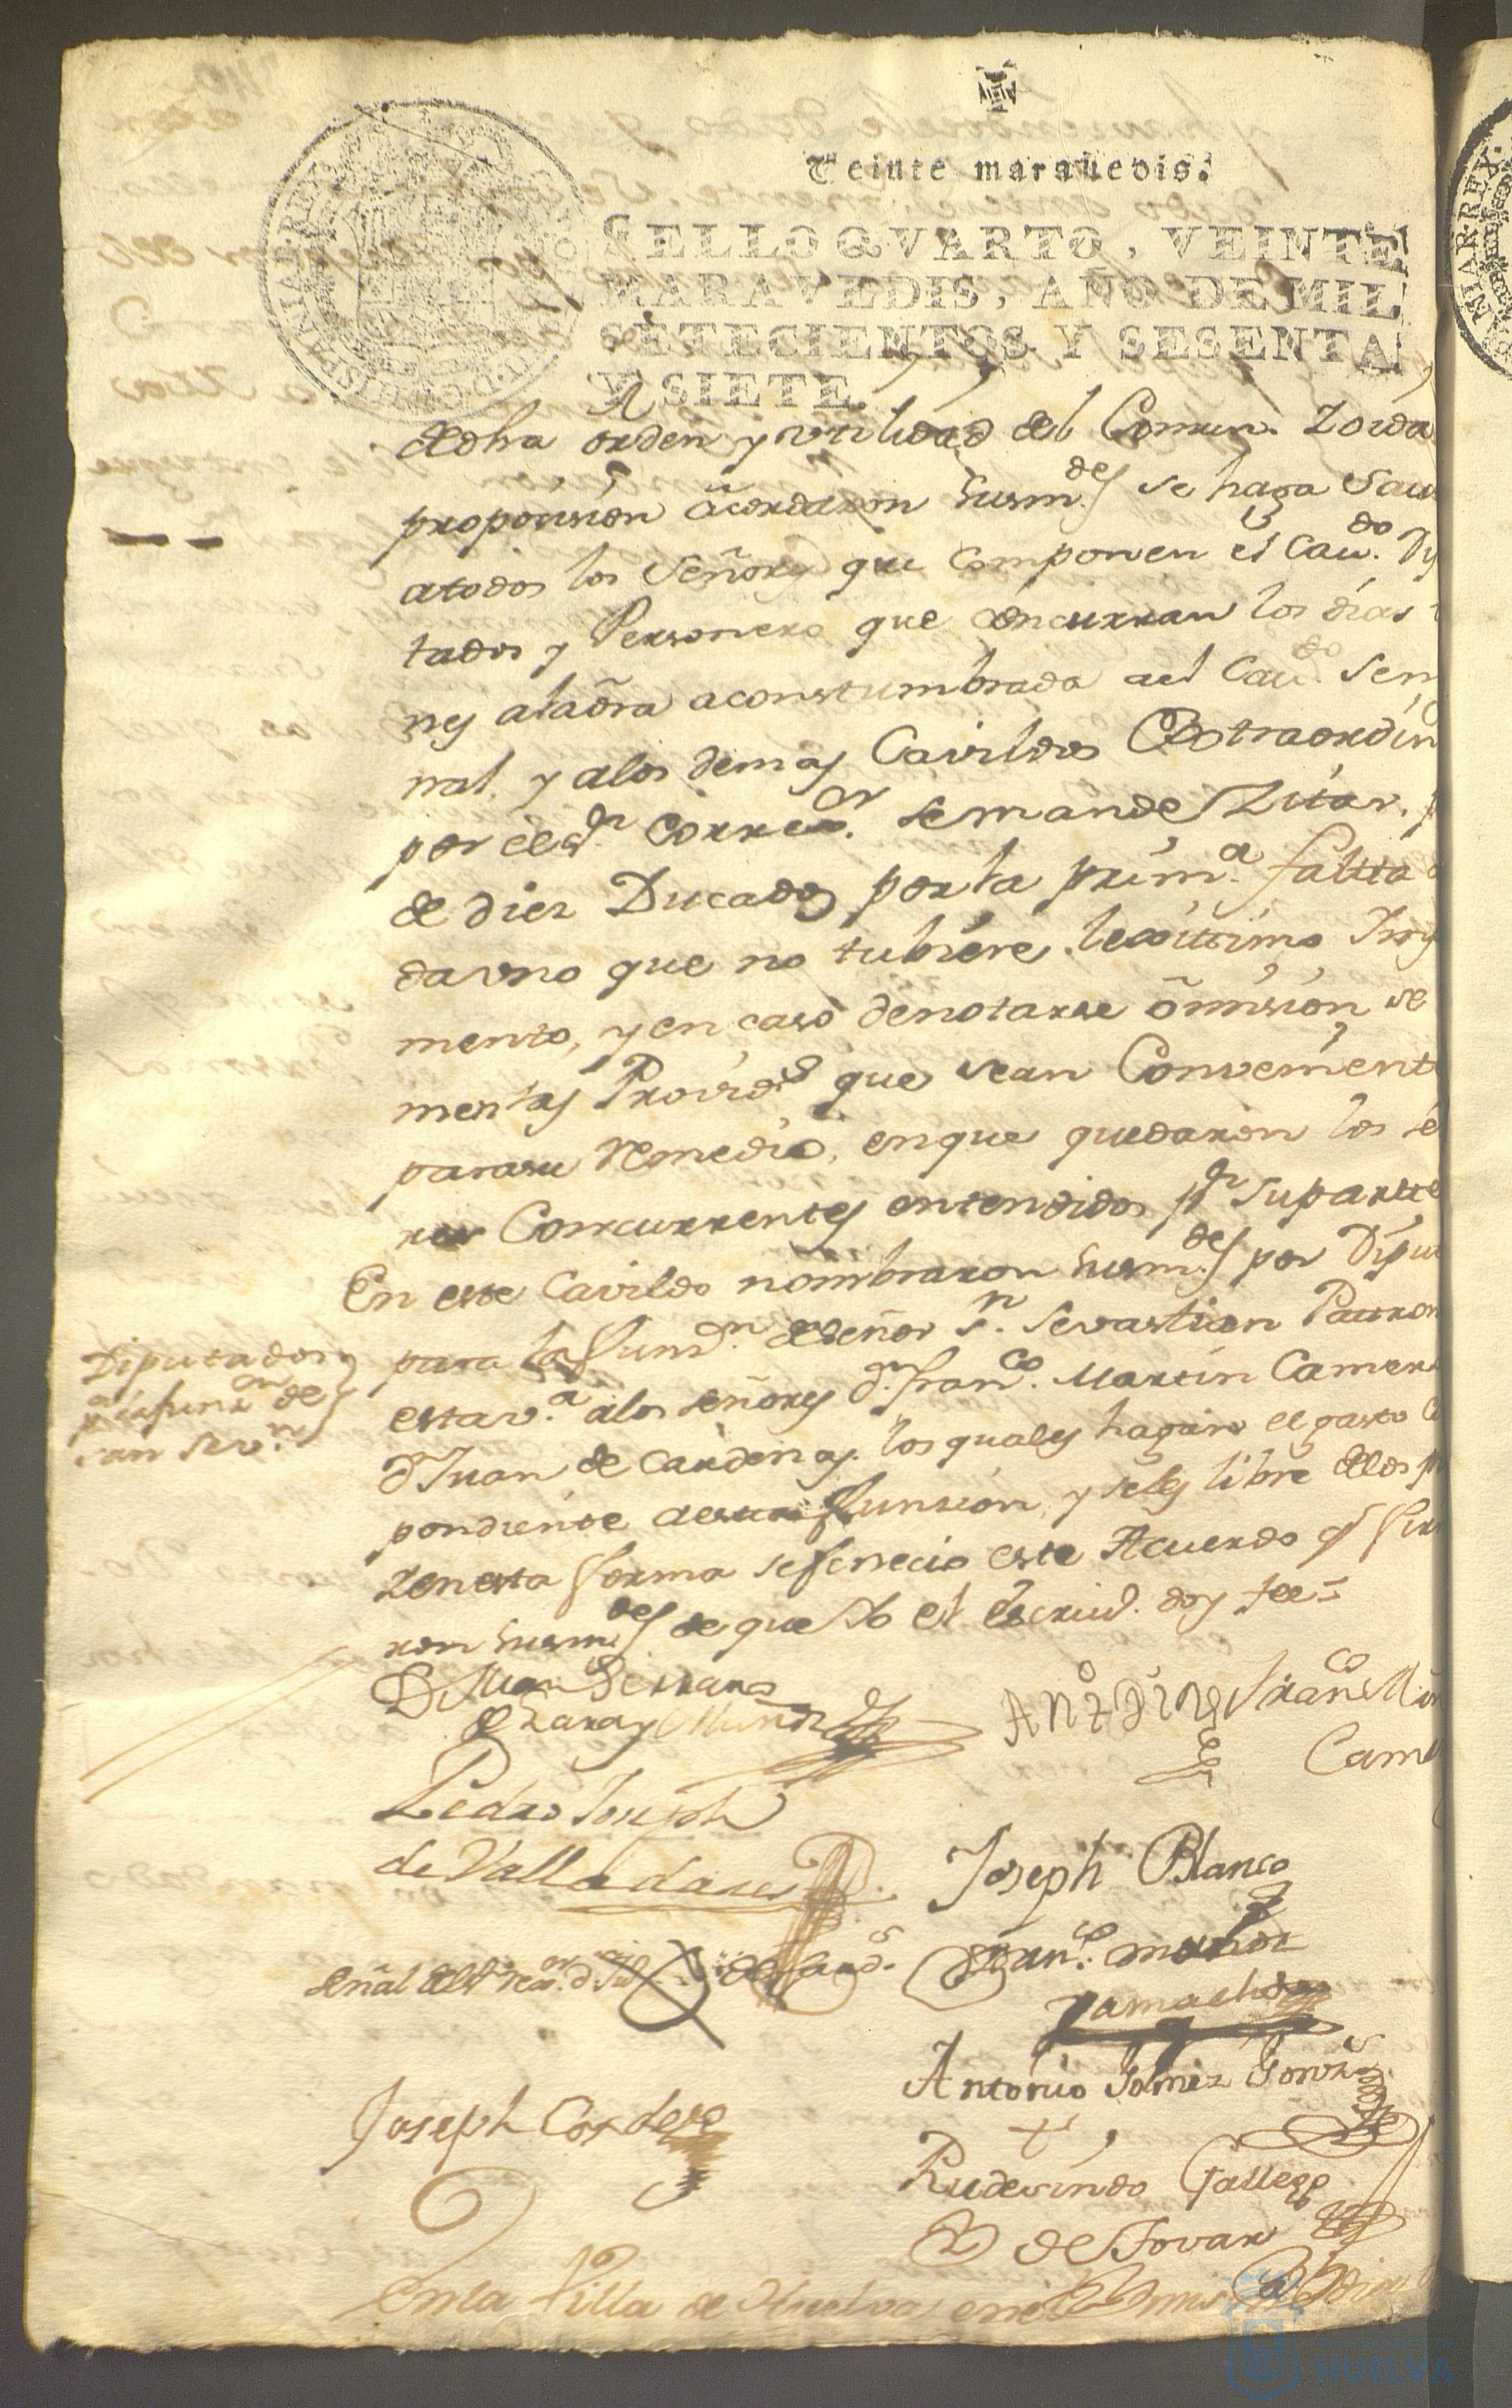 Veinte marauedis.
SELLO QVARTO, VEINTE
MARAVEDIS, AÑO DE MIL
SETECIENTOS Y SESENTA
Y SIETE.
dedha orden y vtilidad del Comun. Y oida
proposision acordaron susm.des se haga Sau
atodos los Señores que Componen el Cau.do Dip
tados y Personero que concurran los dias
nes alaora acostumbrada ael Cau.do Sem
nal, y alos demas Cavildos Extraordin
por el S.r Corre.or se mande Zitar, p
de diez Ducados por la prim.a faltta
dauno que no tubiere lexittimo Imp
mento, y en caso denotarse omision se
mentas Provid.s que sean Combenient
parasu remedio, enque quedaron los se
res Concurrentes entendidos p.r suparte
En este Cavildo nombraron susm.des por Dipu
Diputados
p.a la funz.on de
san Sev.n
para la funz.n del Señor S.n Sevastian Patron
esta v.a alos señores d.n Fran.co Martin Camer
d.n Juan de Cardenas, los quales hagan el gasto
pondiente aesta funsion, y seles libre dellos p
Yenesta forma sefenecio este Acuerdo q.e fir
ron susm.des de que Yo el Escriu.o doy fee=
D.n Juan Serrano
Garay Muñoz
Fran.co M
Cam
Pedro Joseph
de Valladares
Joseph Blanco
Señal del
Fran.co muñoz
Camacho
Antonio Gomez Gonz.s
Joseph Cordero
Rudesindo Gallego
de Tovar
Enla Villa de Huelva en
HUELVA